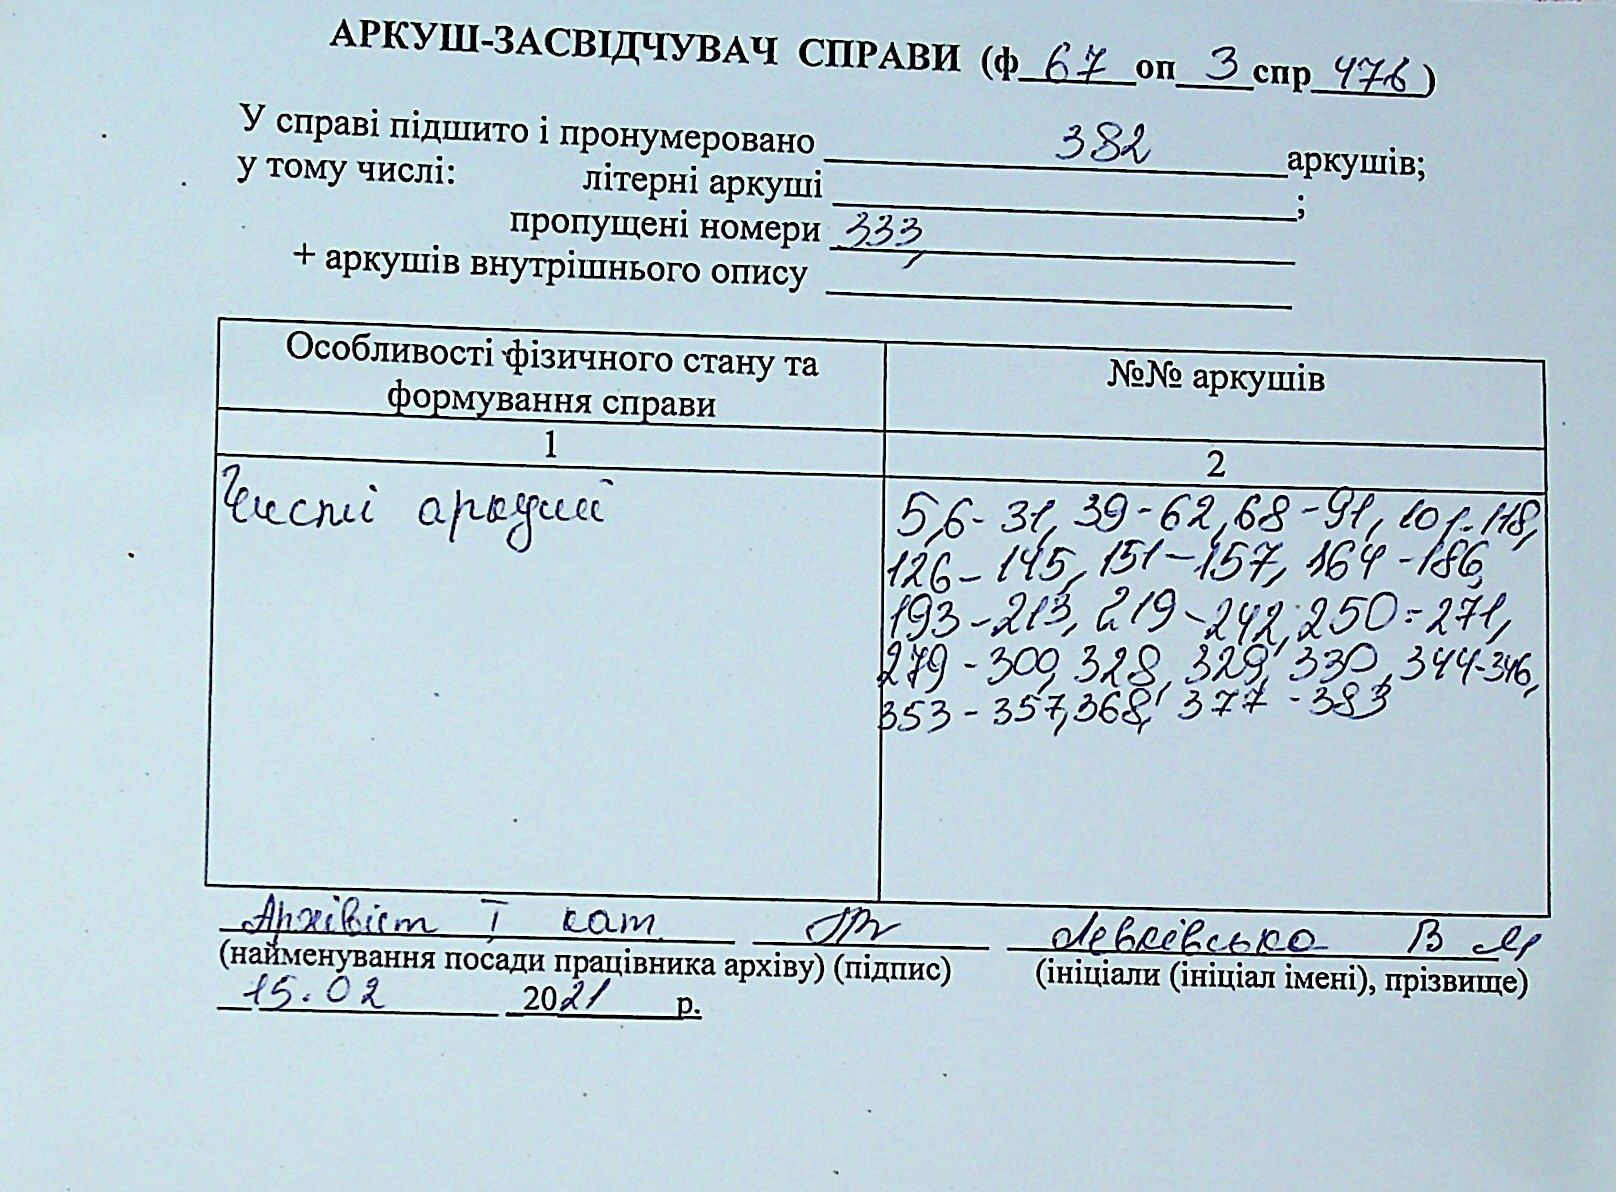 АРКУШ-ЗАСВІДЧУВАЧ СПРАВИ (ф 67 оп 3 спр 476)
У справі підшито і пронумеровано 382 аркушів;
у тому числі: літерні аркуші ;
пропущені номери 333,
+ аркушів внутрішнього опису
Особливості фізичного стану та формування справи
№№ аркушів
1
2
Чисті аркуші
5,6-31, 39-62, 68-91, 101-118,
126-145, 151-157, 164-186,
193-213, 219-242, 250-271,
279-300, 328, 329, 330, 344-346,
353-357, 368, 377-383
Архівіст І кат. Левківська В
(найменування посади працівника архіву) (підпис) (ініціали (ініціал імені), прізвище)
15.02 2021 р.